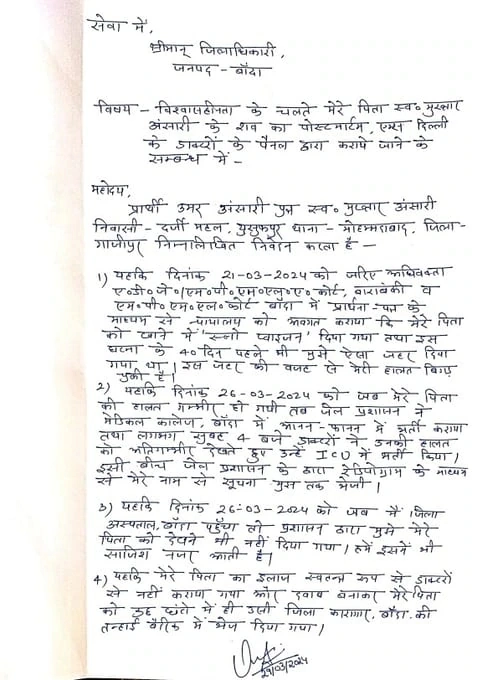 सेवा में,
श्रीमान् जिलाधिकारी,
जनपद - बाँदा
विषय - विश्वासहीनता के चलते मेरे पिता स्व० मुख्तार
अंसारी के शव का पोस्टमार्टम, एम्स दिल्ली
के डाक्टरों के पैनल द्वारा कराये जाने के
सम्बन्ध में -
महोदय,
प्रार्थी उमर अंसारी पुत्र स्व० मुख्तार अंसारी
निवासी - दर्जी महल, युसुफपुर थाना - मोहम्मदाबाद, जिला-
गाजीपुर निम्नलिखित निवेदन करता है -
1) यहकि दिनांक 21-03-2024 को जरिए अधिवक्ता
ए०डी०जे०/एम०पी०एम०एल०ए० कोर्ट, बाराबंकी व
एम०पी०एम०एल०कोर्ट बाँदा में प्रार्थना-पत्र के
माध्यम से न्यायालय को अवगत कराया कि मेरे पिता
को खाने में 'स्लो प्वाइजन' दिया गया तथा इस
घटना के 40 दिन पहले भी मुझे ऐसा जहर दिया
गया था। इस जहर की वजह से मेरी हालत बिगड़
चुकी है।
2) यहकि दिनांक 26-03-2024 को जब मेरे पिता
की हालत गम्भीर हो गयी तब जेल प्रशासन ने
मेडिकल कालेज, बाँदा में आनन-फानन में भर्ती कराया
तथा लगभग सुबह 4 बजे डाक्टरों ने उनकी हालत
को अतिगम्भीर देखते हुए उन्हें ICU में भर्ती किया।
इसी बीच जेल प्रशासन के द्वारा रेडियोग्राम के माध्यम
से मेरे नाम से सूचना मुझ तक भेजी।
3) यहकि दिनांक 26-03-2024 को जब मैं जिला
अस्पताल, बाँदा पहुँचा तो प्रशासन द्वारा मुझे मेरे
पिता को देखने भी नहीं दिया गया। हमें इसमें भी
साजिश नजर आती है।
4) यहकि मेरे पिता का इलाज स्वतन्त्र रूप से डाक्टरों
से नहीं कराया गया और दवाब बनाकर मेरे पिता
को कुछ घंटो में ही उसी जिला कारागार, बाँदा की
तन्हाई बैरिक में भेज दिया गया।
29/03/2024